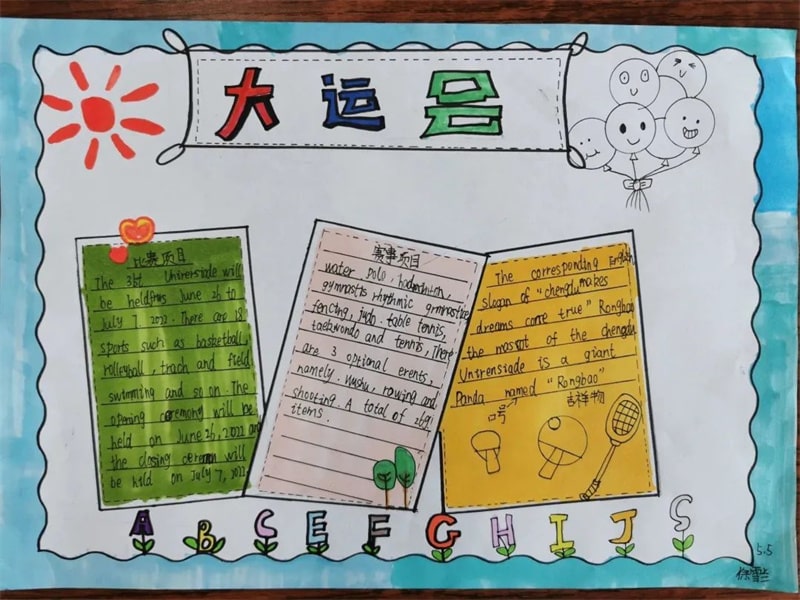 大运号
比赛项目
The 31st Universiade will
be heldfrom June 26 to
July 7 2022. There are 18
sports such as basketball,
volleyball, trach and field
swimming and so on. The
opening ceremony will be
held on June 26, 2022 and
the closing ceremon will
be held on July 7, 2022
赛事项目
water polo, badminton,
gymnastis rhythmic grmnastics
fencing, judo table tennis,
taekwondo and tennis, There
are 3 optional erents,
namely. Wushu, rowing and
shooting. A total of 269
items.
The corresponding English
slogan of "chengdu makes
dreams come true" Rongbao
the mascot of the chengdu
Unirensiade is a giant
Panda named "Rongbao"
口号 吉祥物
A B C E F G H I J S
5.5